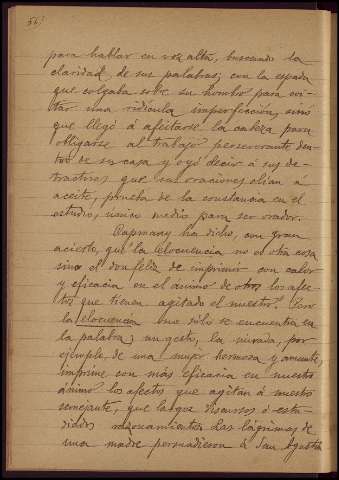 56,,
para hablar en voz alta, buscando la
claridad, de sus palabras; con la espada
que colgaba sobre su hombro para evi-
tar una ridicula imperfección; sinó
que llegó á afeitarse la cabeza para
obligarse al trabajo perseverante den-
tro de su casa y oyó decir á sus de-
tractores que sus oraciones olian á
aceite, prueba de la constancia en el
estudio, unico medio para ser orador.
Capmany ha dicho, con gran
acierto, que "la elocuencia no es otra cosa
sino el don feliz de imprimir con calor
y eficacia en el ánimo de otros los afec-
tos que tienen agitado el nuestro". Pero
la elocuencia no sólo se encuentra en
la palabra; un gesto, la mirada, por
ejemplo, de una mujer hermosa y amante,
imprime con más eficacia en nuestro
ánimo los afectos que agitan á nuestro
semejante, que largos discursos ó estu-
diados razonamientos. Las lágrimas de
una madre persuadieron á San Agustin